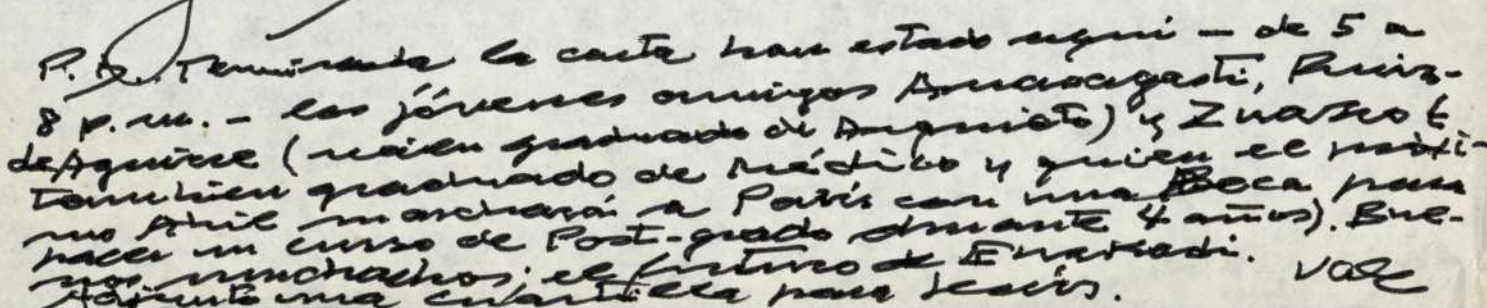 P.D. Terminada la carta han estado aqui - de 5 a
8 p.m. - los jóvenes amigos Anasagasti, Ruiz-
de Aguirre (recien graduado de Arquitecto) y Znasko t
Tambien graduado de Médico y quien el próxi-
mo Abril marchará a París con una Beca para
hacer un curso de Post-grado durante 4 años). Bue-
nos muchachos; el futuro de Enskadi.
Adjunto una cuartilla para Jesús. Vale